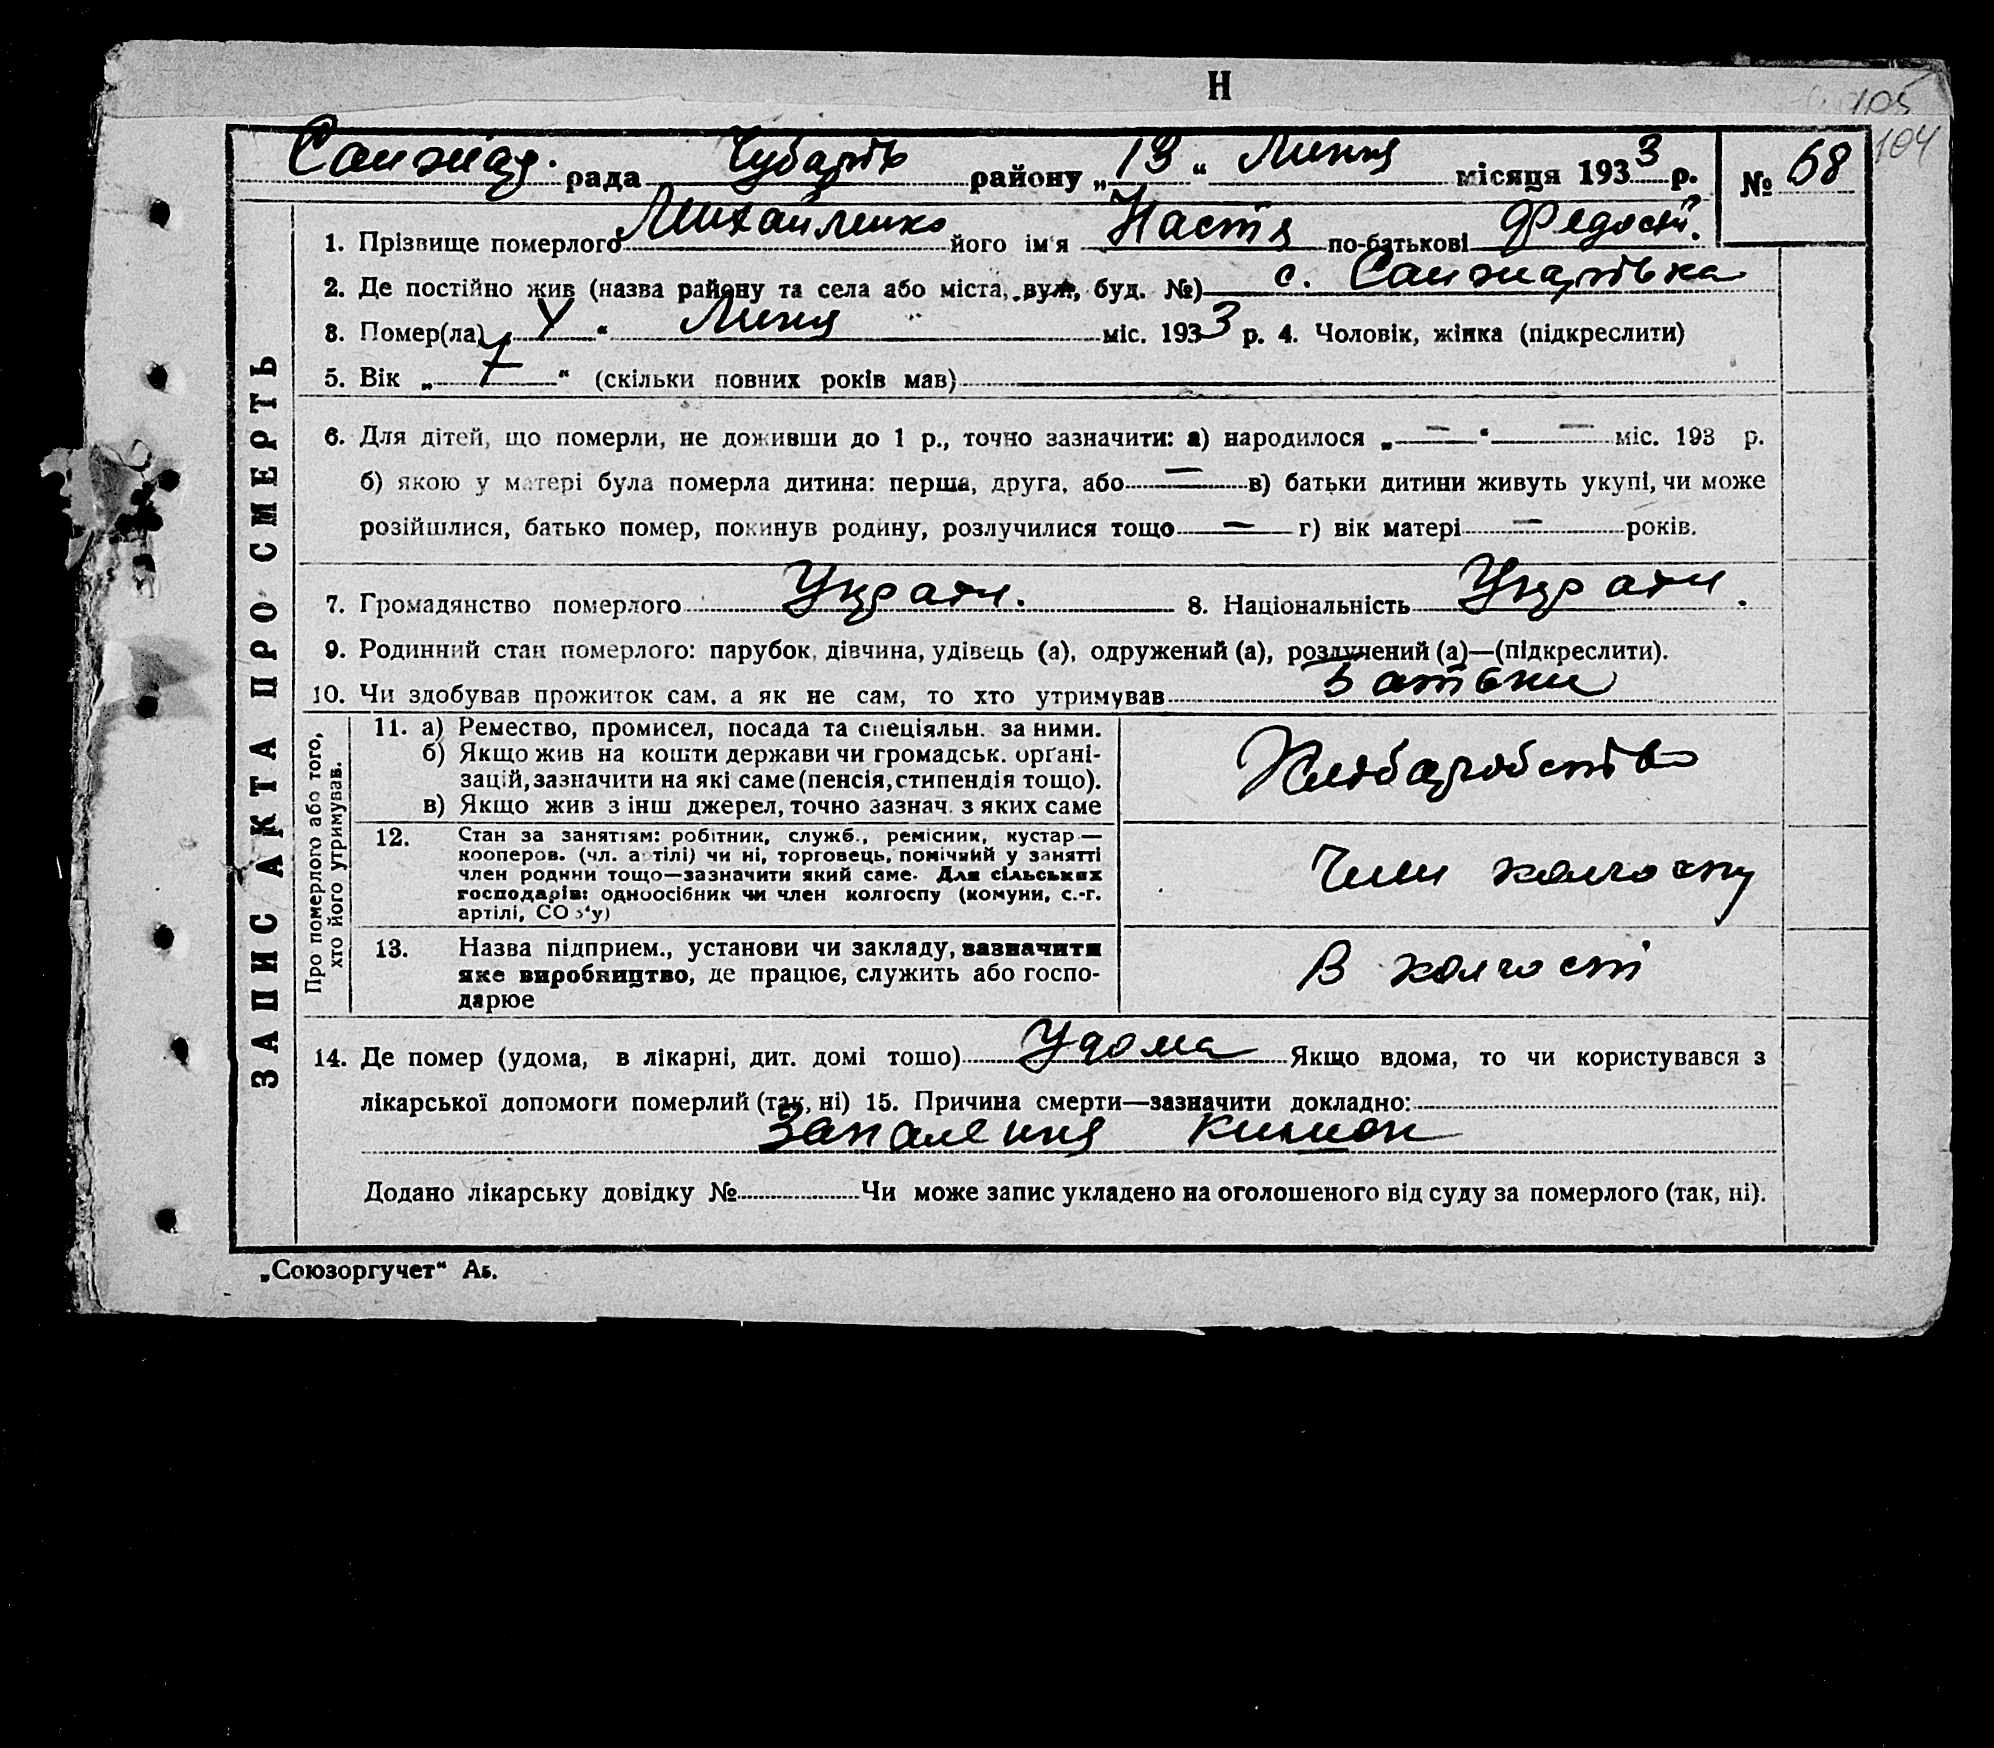 Н
105
104
Санжар. рада Чубарів району „13“ Липня місяця 1933 р. № 68
1. Прізвище померлого Михайленко його ім'я Настя по-батькові Федосі.
2. Де постійно жив (назва району та села або міста, вул., буд. №) с. Санжарівка
3. Помер(ла) „ “ Липня міс. 1933 р. 4. Чоловік, жінка (підкреслити)
5. Вік „7“ (скільки повних років мав)
6. Для дітей, що померли, не доживши до 1 р., точно зазначити: а) народилося „—“ — міс. 193 р.
б) якою у матері була померла дитина: перша, друга, або — в) батьки дитини живуть укупі, чи може
розійшлися, батько помер, покинув родину, розлучилися тощо — г) вік матері — років.
7. Громадянство померлого Україн. 8. Національність Україн.
9. Родинний стан померлого: парубок, дівчина, удівець (а), одружений (а), розлучений (а)—(підкреслити).
10. Чи здобував прожиток сам, а як не сам, то хто утримував Батьки
ЗАПИС АКТА ПРО СМЕРТЬ
Про померлого або того,
хто його утримував.
11. а) Ремество, промисел, посада та спеціяльн. за ними.
б) Якщо жив на кошти держави чи громадськ. органі-
зацій, зазначити на які саме (пенсія, стипендія тощо).
в) Якщо жив з інш джерел, точно зазнач. з яких саме
Хлібаробство
12. Стан за заняттям: робітник, служб., ремісник, кустар—
кооперов. (чл. артілі) чи ні, торговець, помічний у занятті
член родини тощо—зазначити який саме. Для сільських
господарів: одноосібник чи член колгоспу (комуни, с.-г.
артілі, СОЗ'у)
Член колгоспу
13. Назва підприєм., установи чи закладу, зазначити
яке виробництво, де працює, служить або госпо-
дарює
В колгоспі
14. Де помер (удома, в лікарні, дит. домі тошо) Удома Якщо вдома, то чи користувався з
лікарської допомоги померлий (так, ні) 15. Причина смерти—зазначити докладно:
Запалення кишок
Додано лікарську довідку № Чи може запис укладено на оголошеного від суду за померлого (так, ні).
„Союзоргучет“ Аб.